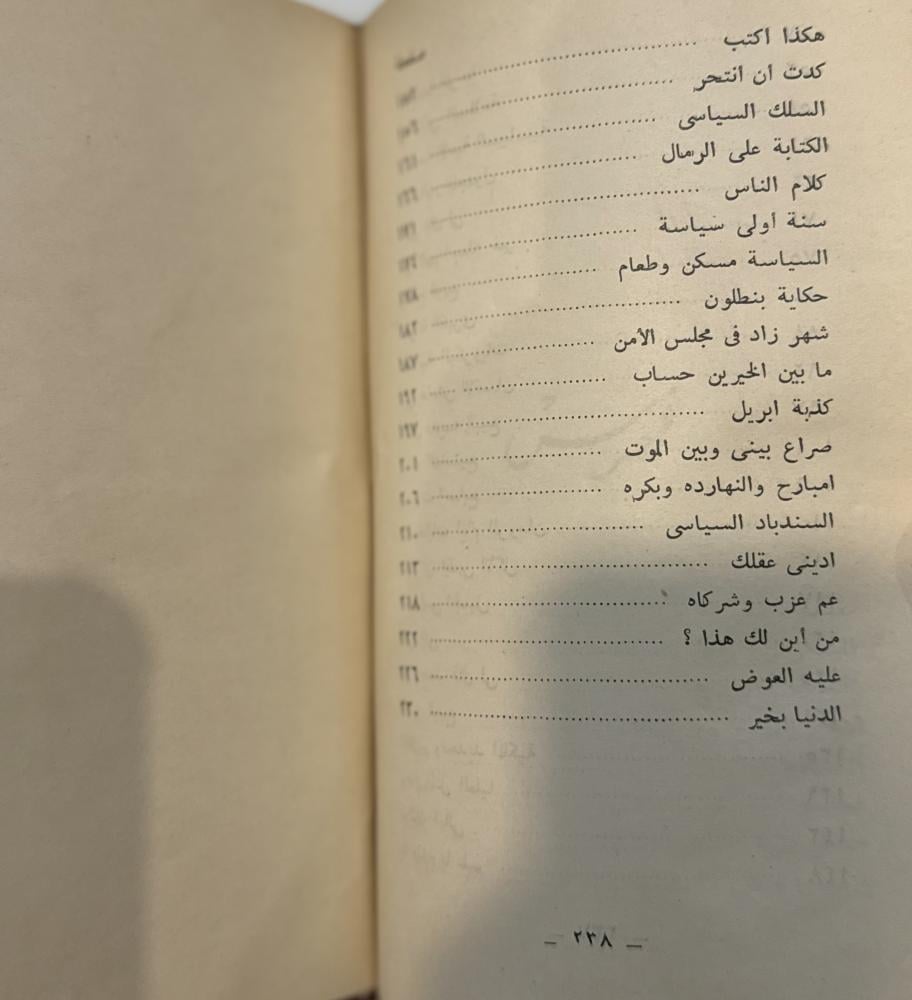 هكذا اكتب
كدت أن أنتحر
السلك السياسى
الكتابة على الرمال ١٦٦
كلام الناس
سنة أولى سياسة
السياسة مسكن وطعام ١٧٨
حكاية بنطلون ١٨٢
شهر زاد فى مجلس الأمن ١٨٧
ما بين الخيرين حساب ١٩٢
كذبة ابريل ١٩٧
صراع بينى وبين الموت ٢٠١
امبارح والنهارده وبكره ٢٠٦
السندباد السياسى ٢١٠
ادينى عقلك ٢١٣
عم عزب وشركاه ٢١٨
من أين لك هذا ؟ ٢٢٢
عليه العوض ٢٢٦
الدنيا بخير ٢٣٠
— ٢٣٨ —